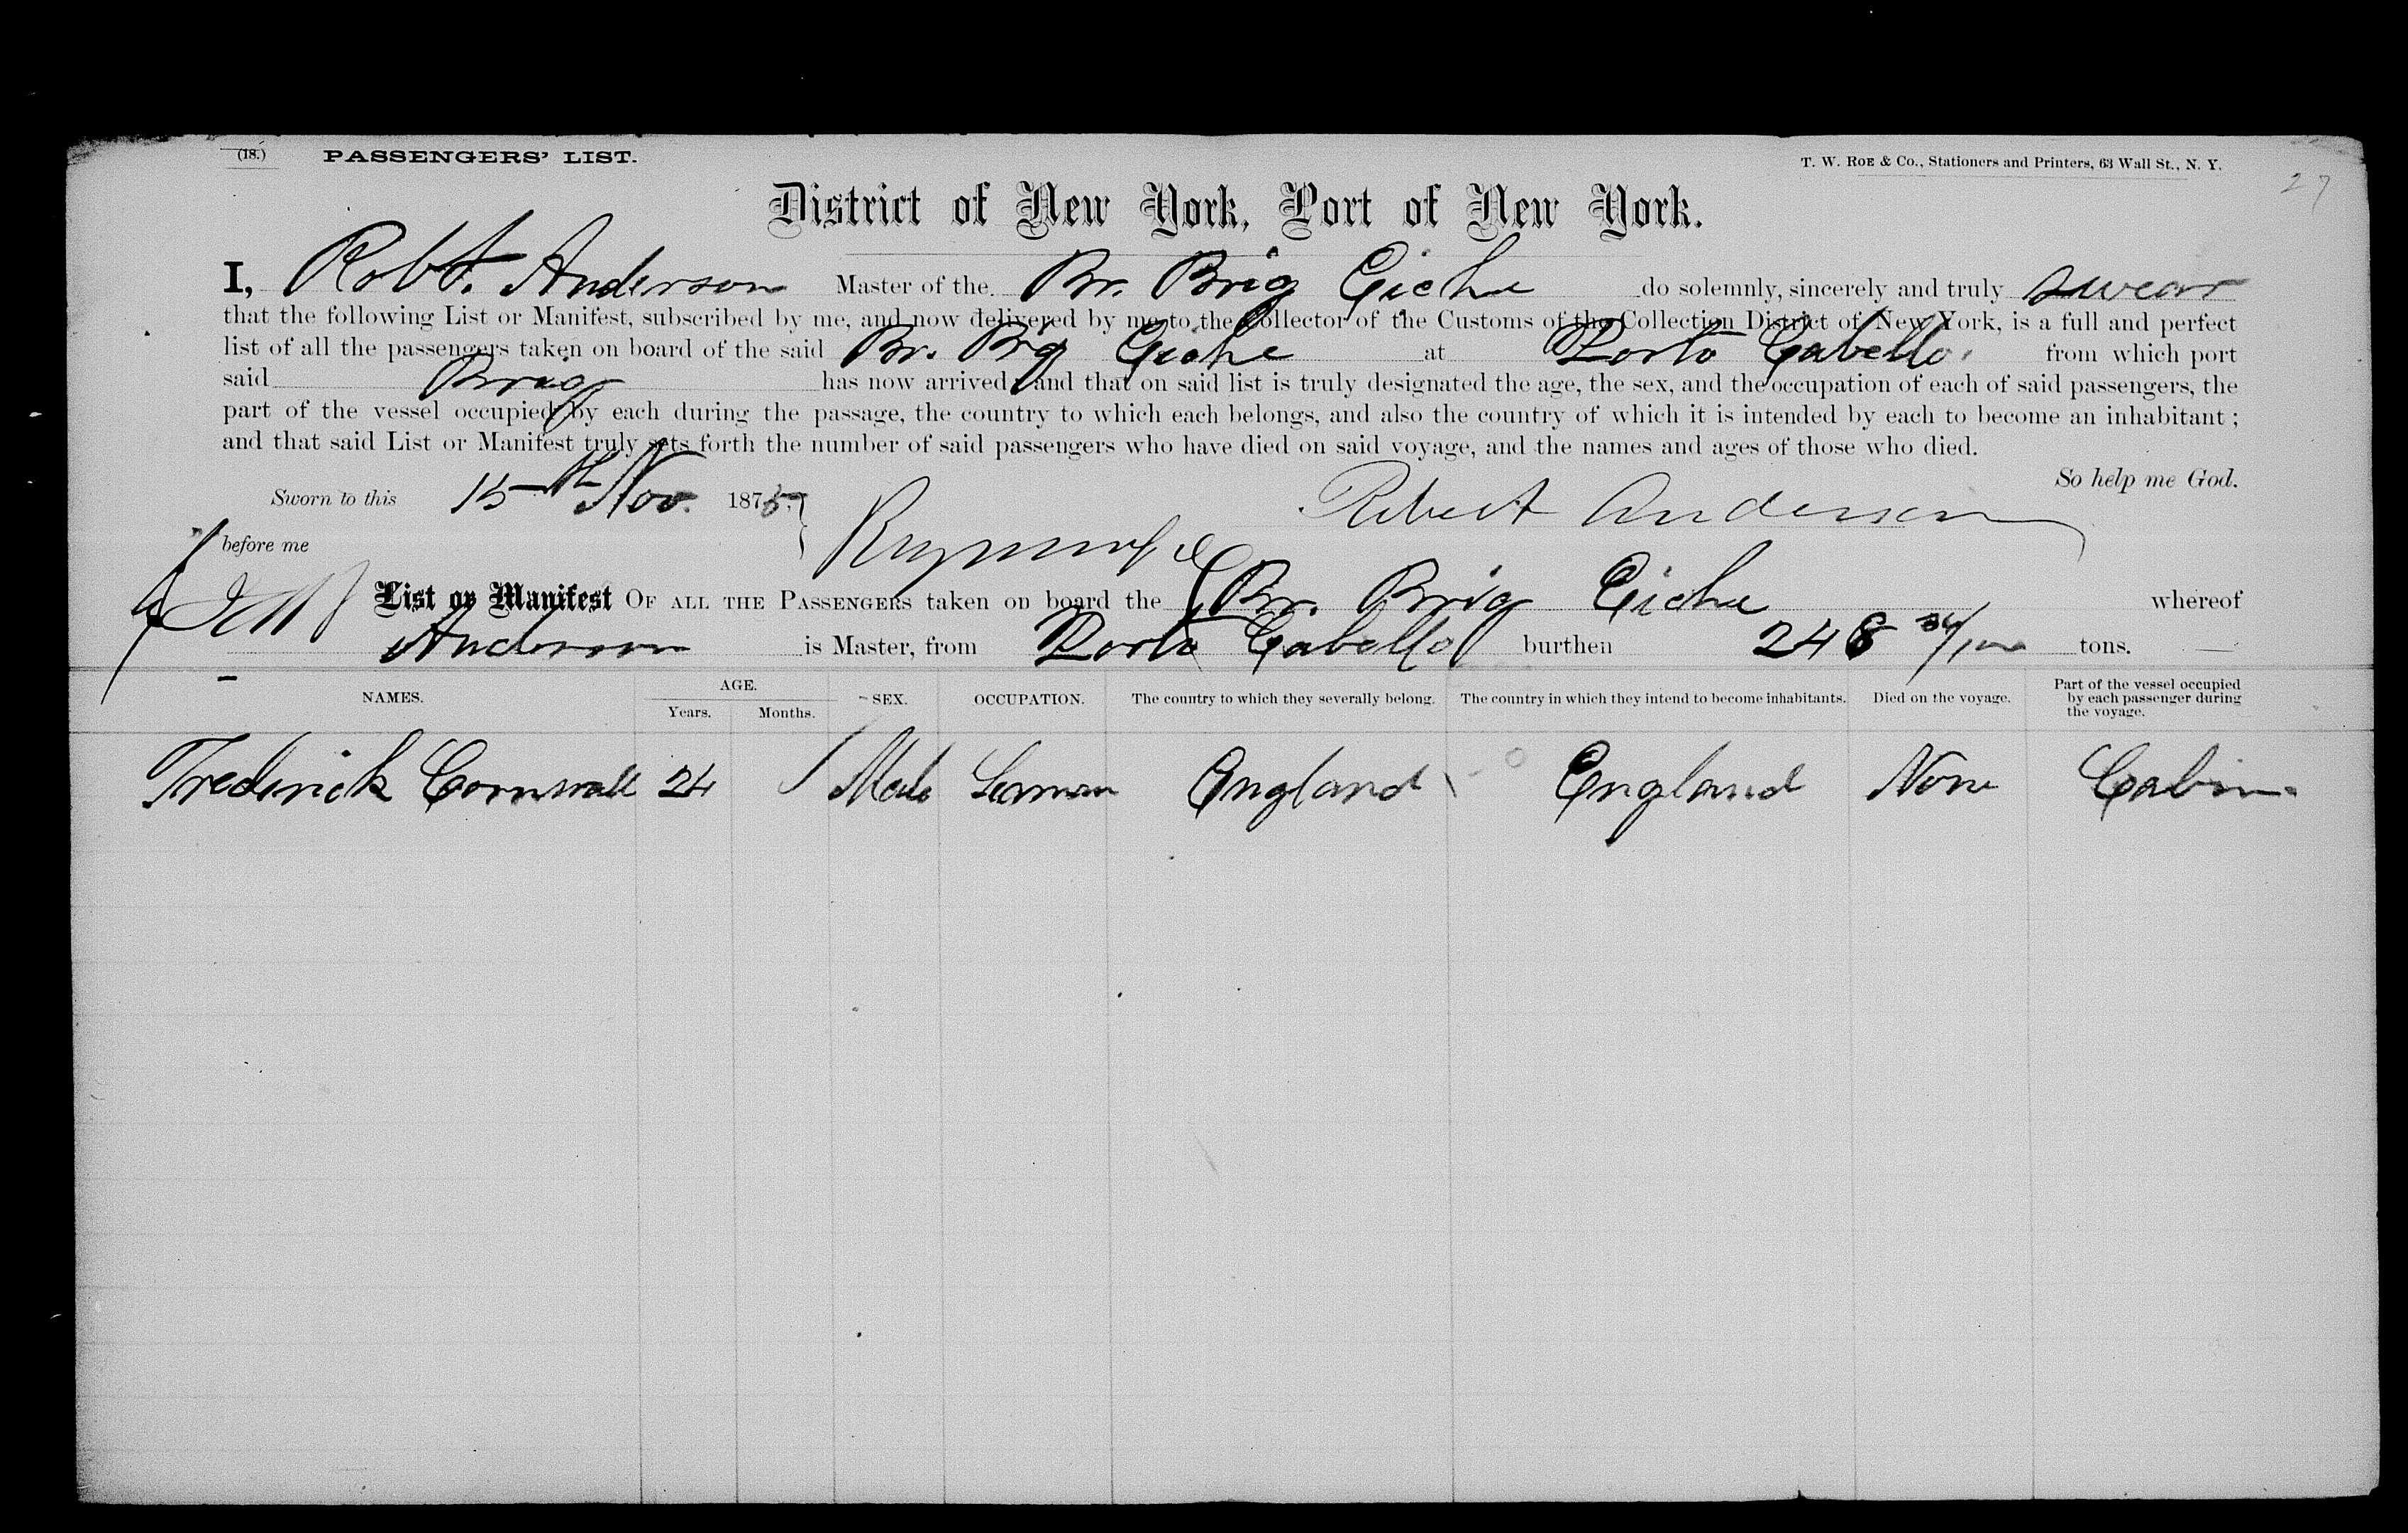 (18.) PASSENGERS' LIST. T. W. ROE & Co., Stationers and Printers, 63 Wall St., N. Y.
27
District of New York, Port of New York.
I, Robt. Anderson Master of the Br. Brig Eiche do solemnly, sincerely and truly swear
that the following List or Manifest, subscribed by me, and now delivered by me to the Collector of the Customs of the Collection District of New York, is a full and perfect
list of all the passengers taken on board of the said Br. Brig Eiche at Porto Cabello. from which port
said Brig has now arrived, and that on said list is truly designated the age, the sex, and the occupation of each of said passengers, the
part of the vessel occupied by each during the passage, the country to which each belongs, and also the country of which it is intended by each to become an inhabitant;
and that said List or Manifest truly sets forth the number of said passengers who have died on said voyage, and the names and ages of those who died.
So help me God.
Sworn to this 15th Nov. 1875. Robert Anderson
before me
List or Manifest OF ALL THE PASSENGERS taken on board the Br. Brig Eiche whereof
Anderson is Master, from Porto Cabello burthen 248 tons.
NAMES. AGE. Years. Months. SEX. OCCUPATION. The country to which they severally belong. The country in which they intend to become inhabitants. Died on the voyage. Part of the vessel occupied by each passenger during the voyage.
Frederick Cornwall 24 Male Seaman England England None Cabin.